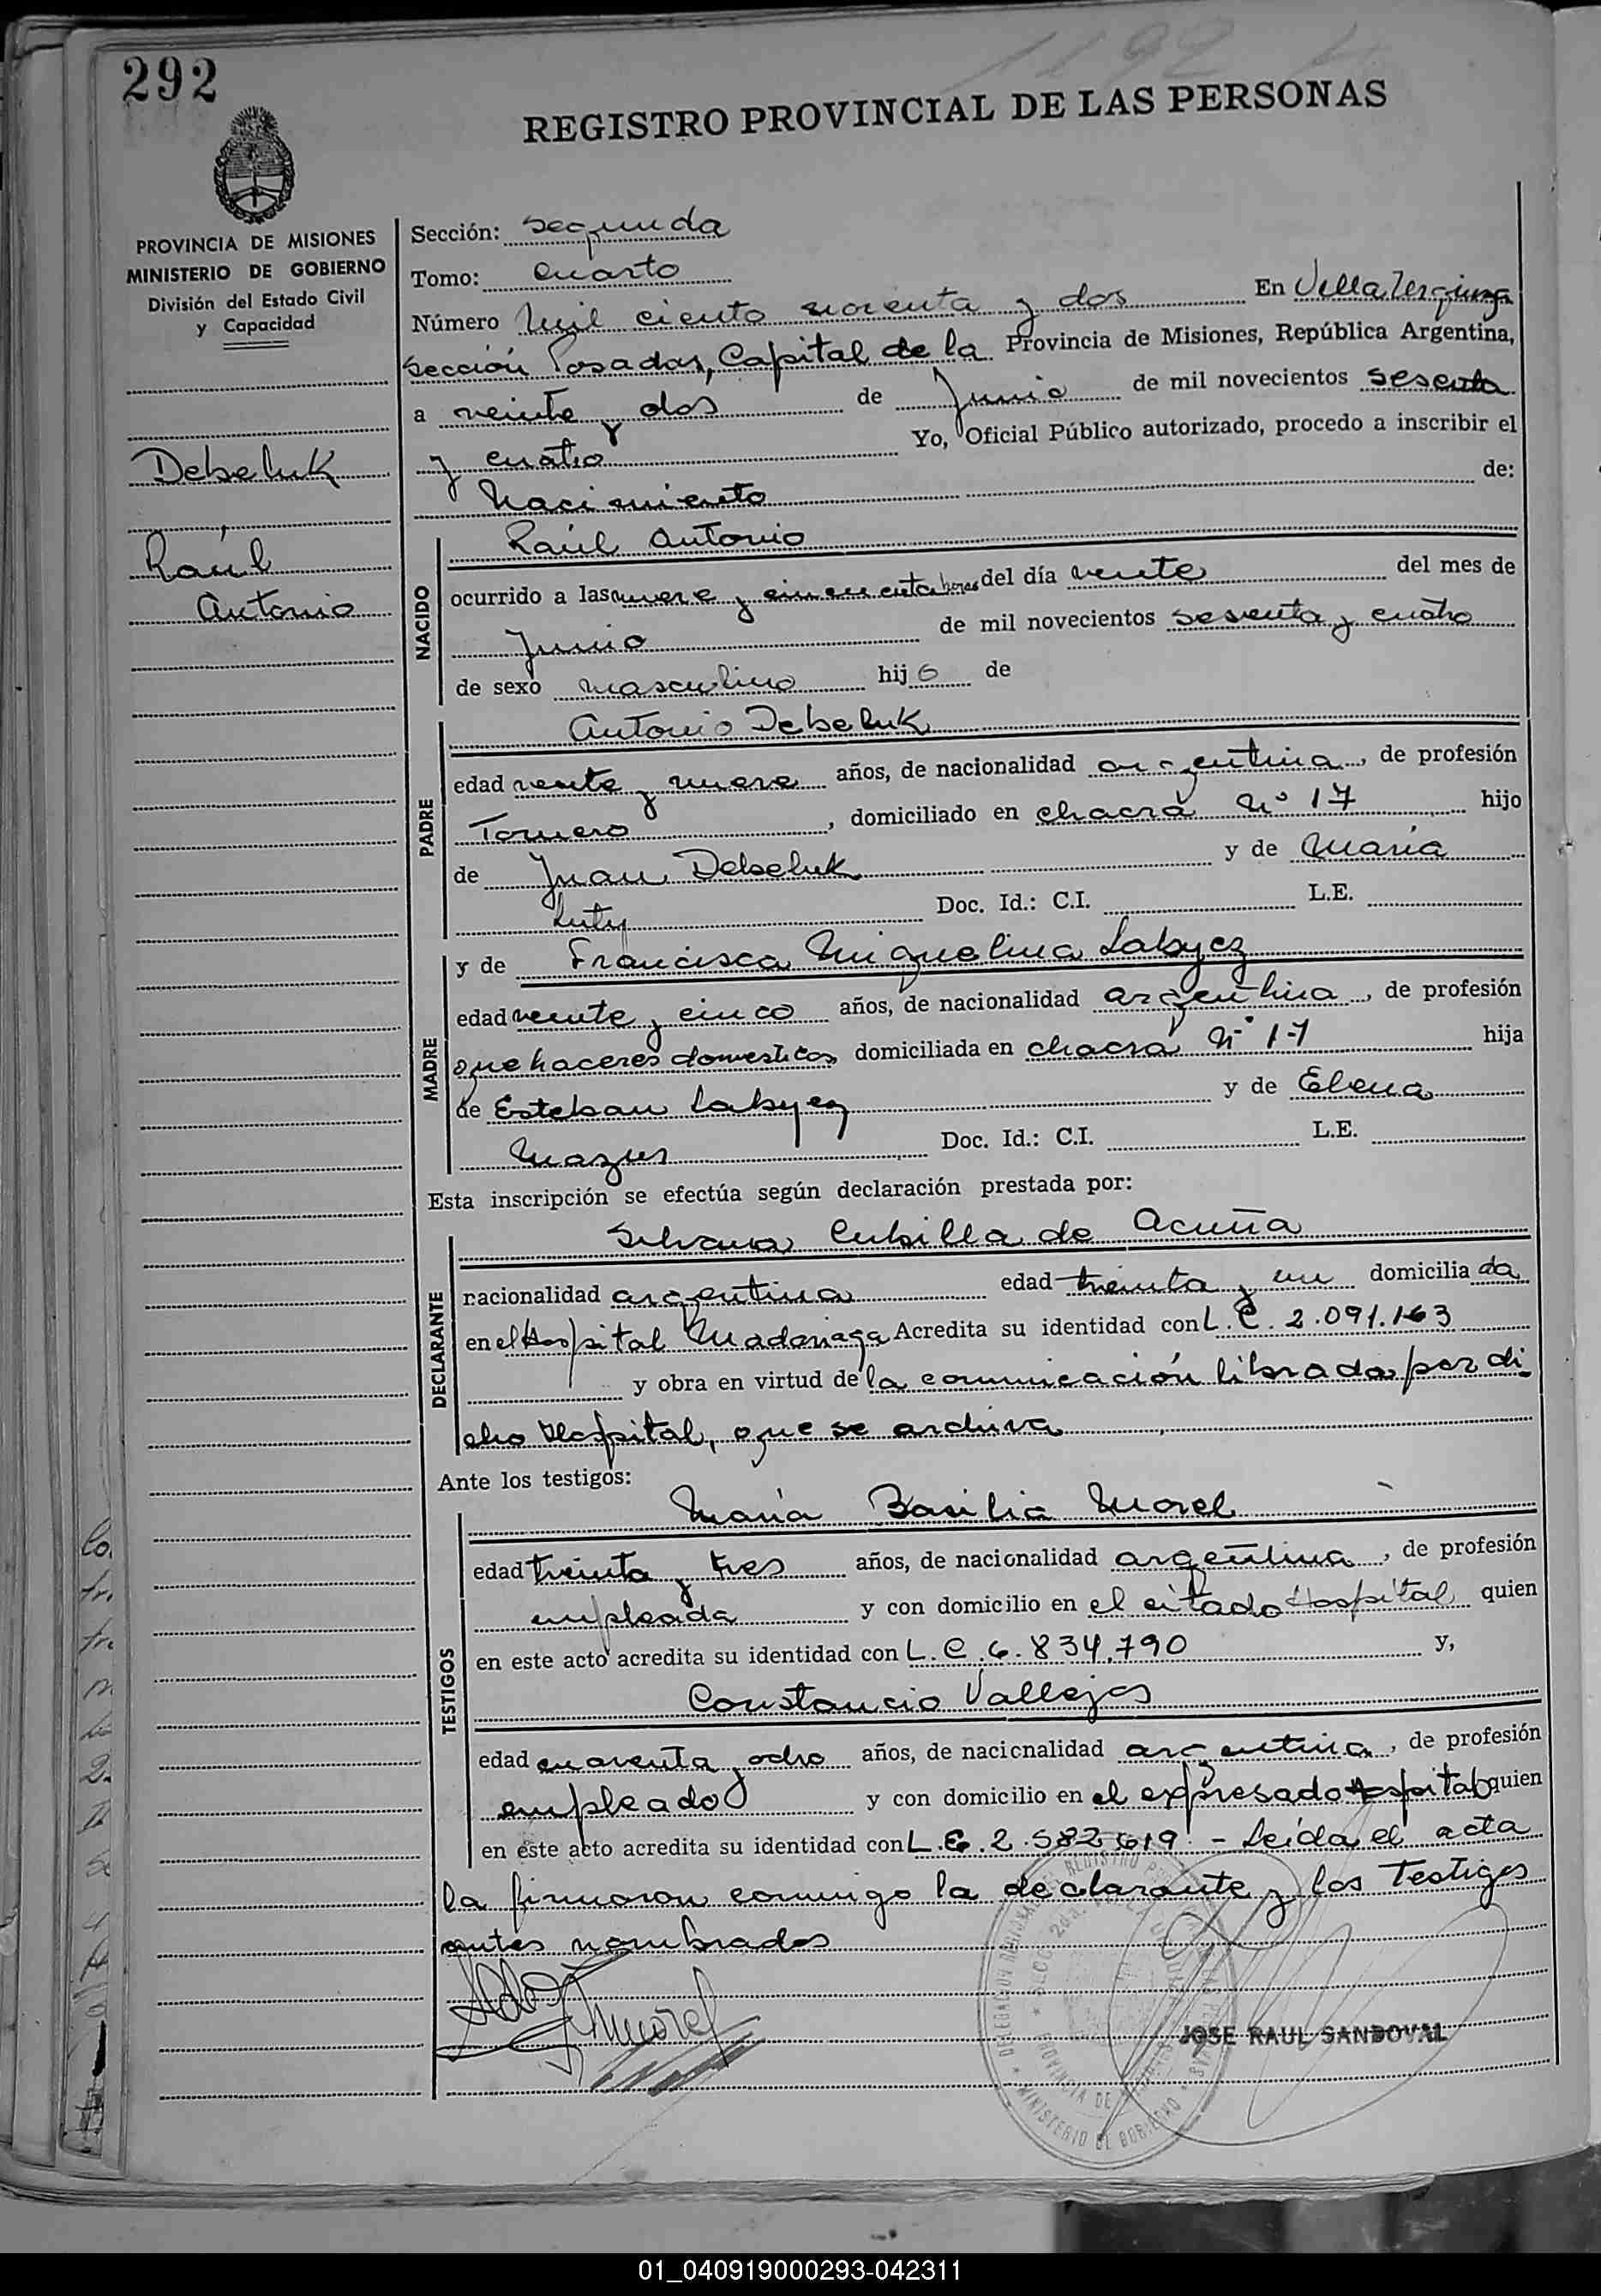 292
1192
REGISTRO PROVINCIAL DE LAS PERSONAS
PROVINCIA DE MISIONES
MINISTERIO DE GOBIERNO
División del Estado Civil
y Capacidad
Debeluk
Raúl
Antonio
Sección: segunda
Tomo: cuarto
Número Mil ciento noventa y dos En Villa Urquiza
sección Posadas, Capital de la Provincia de Misiones, República Argentina,
a veinte y dos de Junio de mil novecientos sesenta
y cuatro Yo, Oficial Público autorizado, procedo a inscribir el
Nacimiento de:
NACIDO
Raúl Antonio
ocurrido a las nueve y cincuenta horas del día veinte del mes de
Junio de mil novecientos sesenta y cuatro
de sexo masculino hijo de
PADRE
Antonio Debeluk
edad veinte y nueve años, de nacionalidad argentina, de profesión
Tornero, domiciliado en chacra Nº 17 hijo
de Juan Debeluk y de María
Luty Doc. Id.: C.I. L.E.
MADRE
y de Francisca Miguelina Labyez
edad veinte y cinco años, de nacionalidad argentina, de profesión
que haceres domesticos domiciliada en chacra Nº 17 hija
de Esteban Labyez y de Elena
Mazur Doc. Id.: C.I. L.E.
Esta inscripción se efectúa según declaración prestada por:
DECLARANTE
Silvana Cubilla de Acuña
nacionalidad argentina edad treinta y un domiciliada
en el Hospital Madariaga Acredita su identidad con L.C. 2.091.163
y obra en virtud de la comunicación librada por di
cho Hospital, que se archiva
Ante los testigos:
TESTIGOS
María Basilia Morel
edad treinta y tres años, de nacionalidad argentina, de profesión
empleada y con domicilio en el citado Hospital quien
en este acto acredita su identidad con L.C. 6.834.790 y,
Constancio Vallejos
edad cuarenta y ocho años, de nacionalidad argentina, de profesión
empleado y con domicilio en el expresado Hospital quien
en este acto acredita su identidad con L.E. 2.582.619 - Leída el acta
la firmaron conmigo la declarante y los Testigos
antes nombrados
Morel
JOSE RAUL SANDOVAL
MINISTERIO DE GOBIERNO
PROVINCIA DE MISIONES
01_040919000293-042311